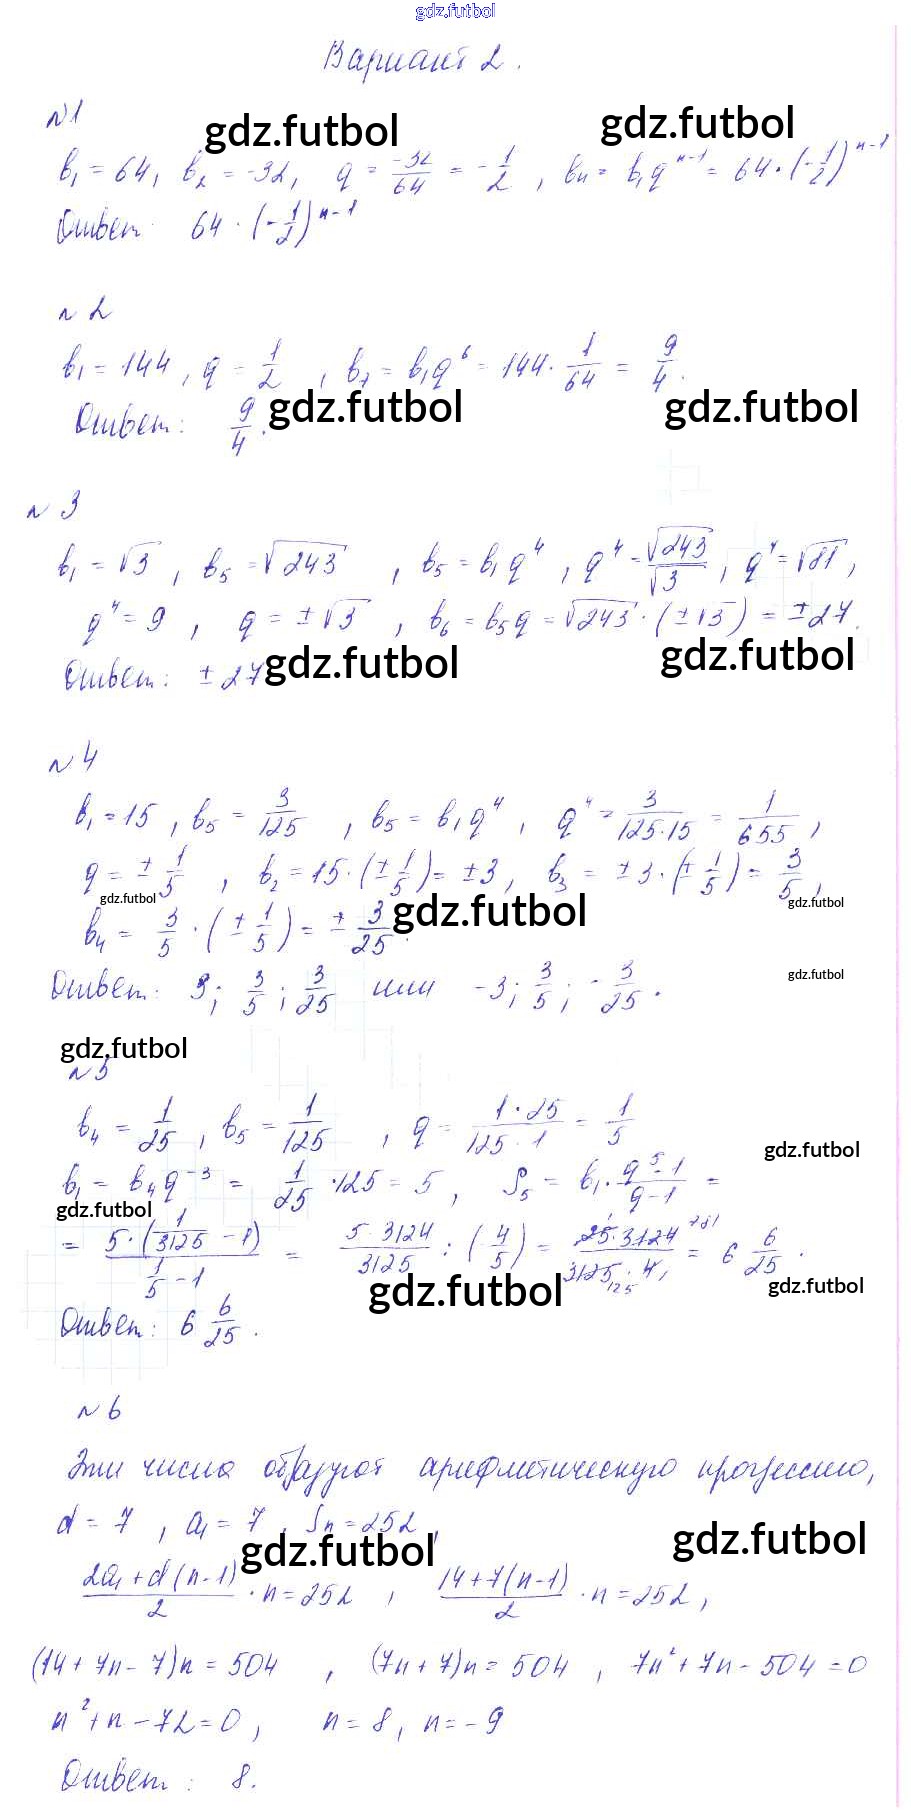 gdz.futbol
Вариант 2.
n 1
gdz.futbol gdz.futbol
b₁ = 64, b₂ = -32, q = -32/64 = -1/2, bn = b₁qⁿ⁻¹ = 64·(-1/2)ⁿ⁻¹
Ответ: 64·(-1/2)ⁿ⁻¹
n 2
b₁ = 144, q = 1/2, b₇ = b₁q⁶ = 144·1/64 = 9/4.
Ответ: 9/4.
gdz.futbol gdz.futbol
n 3
b₁ = √3, b₅ = √243, b₅ = b₁q⁴, q⁴ = √243/√3, q⁴ = √81,
q⁴ = 9, q = ±√3, b₆ = b₅q = √243·(±√3) = ±27.
Ответ: ±27
gdz.futbol gdz.futbol
n 4
b₁ = 15, b₅ = 3/125, b₅ = b₁q⁴, q⁴ = 3/(125·15) = 1/655,
q = ±1/5, b₂ = 15·(±1/5) = ±3, b₃ = ±3·(±1/5) = 3/5,
gdz.futbol gdz.futbol gdz.futbol
b₄ = 3/5·(±1/5) = ±3/25.
Ответ: 3; 3/5; 3/25 или -3; 3/5; -3/25.
gdz.futbol
gdz.futbol
n 5
b₄ = 1/25, b₅ = 1/125, q = (1·25)/(125·1) = 1/5
gdz.futbol
b₁ = b₄q⁻³ = 1/25·125 = 5, S₅ = b₁·(q⁵-1)/(q-1) =
gdz.futbol
= 5·(1/3125 - 1)/(1/5 - 1) = (5·3124)/3125 : (4/5) = (25·3124)/(3125·4) = 6 6/25.
gdz.futbol gdz.futbol
Ответ: 6 6/25.
n 6
Эти числа образуют арифметическую прогрессию,
d = 7, a₁ = 7, Sn = 252,
gdz.futbol gdz.futbol
(2a₁ + d(n-1))/2 · n = 252, (14 + 7(n-1))/2 · n = 252,
(14 + 7n - 7)n = 504, (7n + 7)n = 504, 7n² + 7n - 504 = 0
n² + n - 72 = 0, n = 8, n = -9
Ответ: 8.